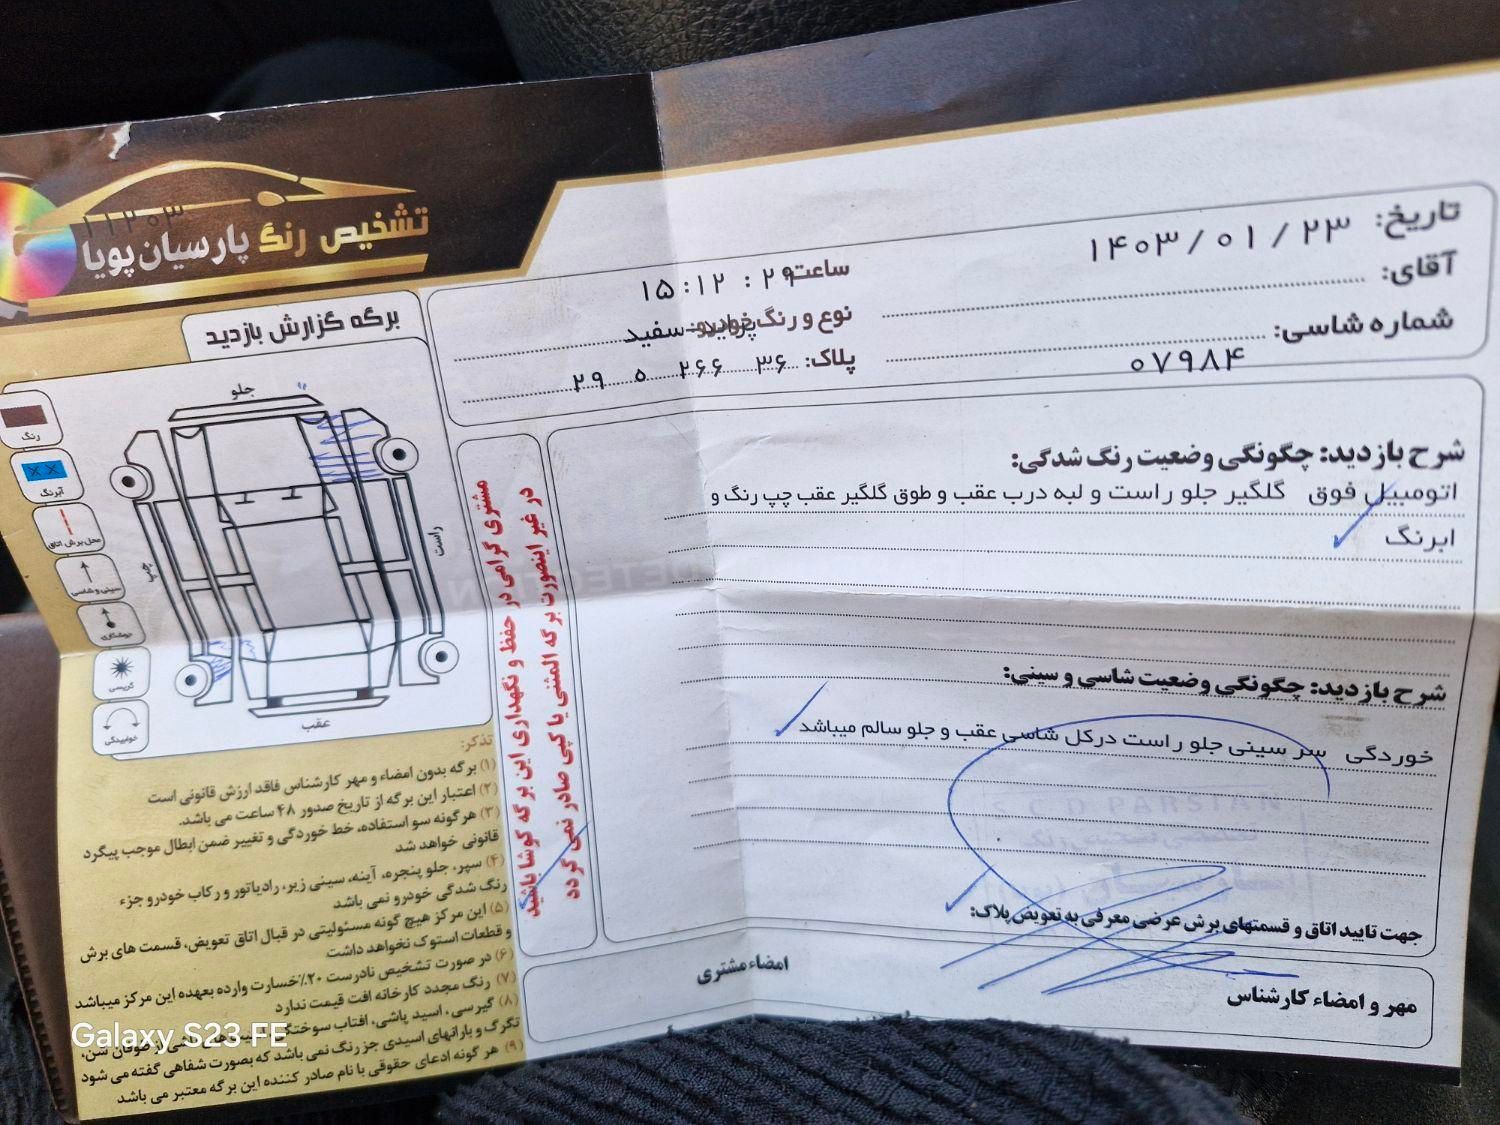 ۱۱۲۰۳
تشخیص رنگ پارسیان پویا
برگه گزارش بازدید
تاریخ: ۱۴۰۳/۰۱/۲۳
ساعت: ۱۵:۱۲ : ۲۹
آقای:
نوع و رنگ خودرو: پراید-سفید
شماره شاسی: ۰۷۹۸۴
پلاک: ۳۶ ۲۶۶ ۵ ۲۹
جلو
راست
چپ
عقب
رنگ
آبرنگ
محل برش اتاق
سینی و شاسی
جوشکاری
گریسی
خوابیدگی
شرح بازدید: چگونگی وضعیت رنگ شدگی:
اتومبیل فوق گلگیر جلو راست و لبه درب عقب و طوق گلگیر عقب چپ رنگ و
ابرنگ
شرح بازدید: چگونگی وضعیت شاسی و سینی:
خوردگی سر سینی جلو راست درکل شاسی عقب و جلو سالم میباشد
جهت تایید اتاق و قسمتهای برش عرضی معرفی به تعویض پلاک:
مهر و امضاء کارشناس
امضاء مشتری
مشتری گرامی در حفظ و نگهداری این برگه کوشا باشید
در غیر اینصورت برگه المثنی یا کپی صادر نمی گردد
تذکر:
۱) برگه بدون امضاء و مهر کارشناس فاقد ارزش قانونی است
۲) اعتبار این برگه از تاریخ صدور ۴۸ ساعت می باشد.
۳) هرگونه سو استفاده، خط خوردگی و تغییر ضمن ابطال موجب پیگرد
قانونی خواهد شد
۴) سپر، جلو پنجره، آینه، سینی زیر، رادیاتور و رکاب خودرو جزء
رنگ شدگی خودرو نمی باشد
۵) این مرکز هیچ گونه مسئولیتی در قبال اتاق تعویض، قسمت های برش
و قطعات استوک نخواهد داشت
۶) در صورت تشخیص نادرست ۲۰٪ خسارت وارده بعهده این مرکز میباشد
۷) رنگ مجدد کارخانه افت قیمت ندارد
۸) گیرسی، اسید پاشی، آفتاب سوختگی از طوفان شن،
تگرگ و بارانهای اسیدی جز رنگ نمی باشد که بصورت شفاهی گفته می شود
۹) هر گونه ادعای حقوقی با نام صادر کننده این برگه معتبر می باشد
Galaxy S23 FE